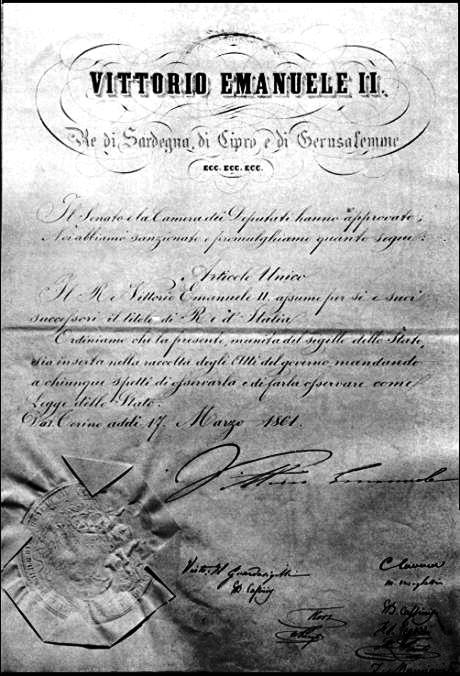 VITTORIO EMANUELE II.
Re di Sardegna, di Cipro e di Gerusalemme
ECC. ECC. ECC.
Il Senato e la Camera dei Deputati hanno approvato;
Noi abbiamo sanzionato e promulghiamo quanto segue:
Articolo Unico
Il Re Vittorio Emanuele II assume per sè e suoi
successori il titolo di Re d'Italia
Ordiniamo che la presente, munita del sigillo dello Stato,
sia inserta nella raccolta degli Atti del governo, mandando
a chiunque spetti di osservarla e di farla osservare come
Legge dello Stato.
Dat. Torino addì 17. Marzo 1861.
Vittorio Emanuele
C Cavour
M. Minghetti
G. Cassinis